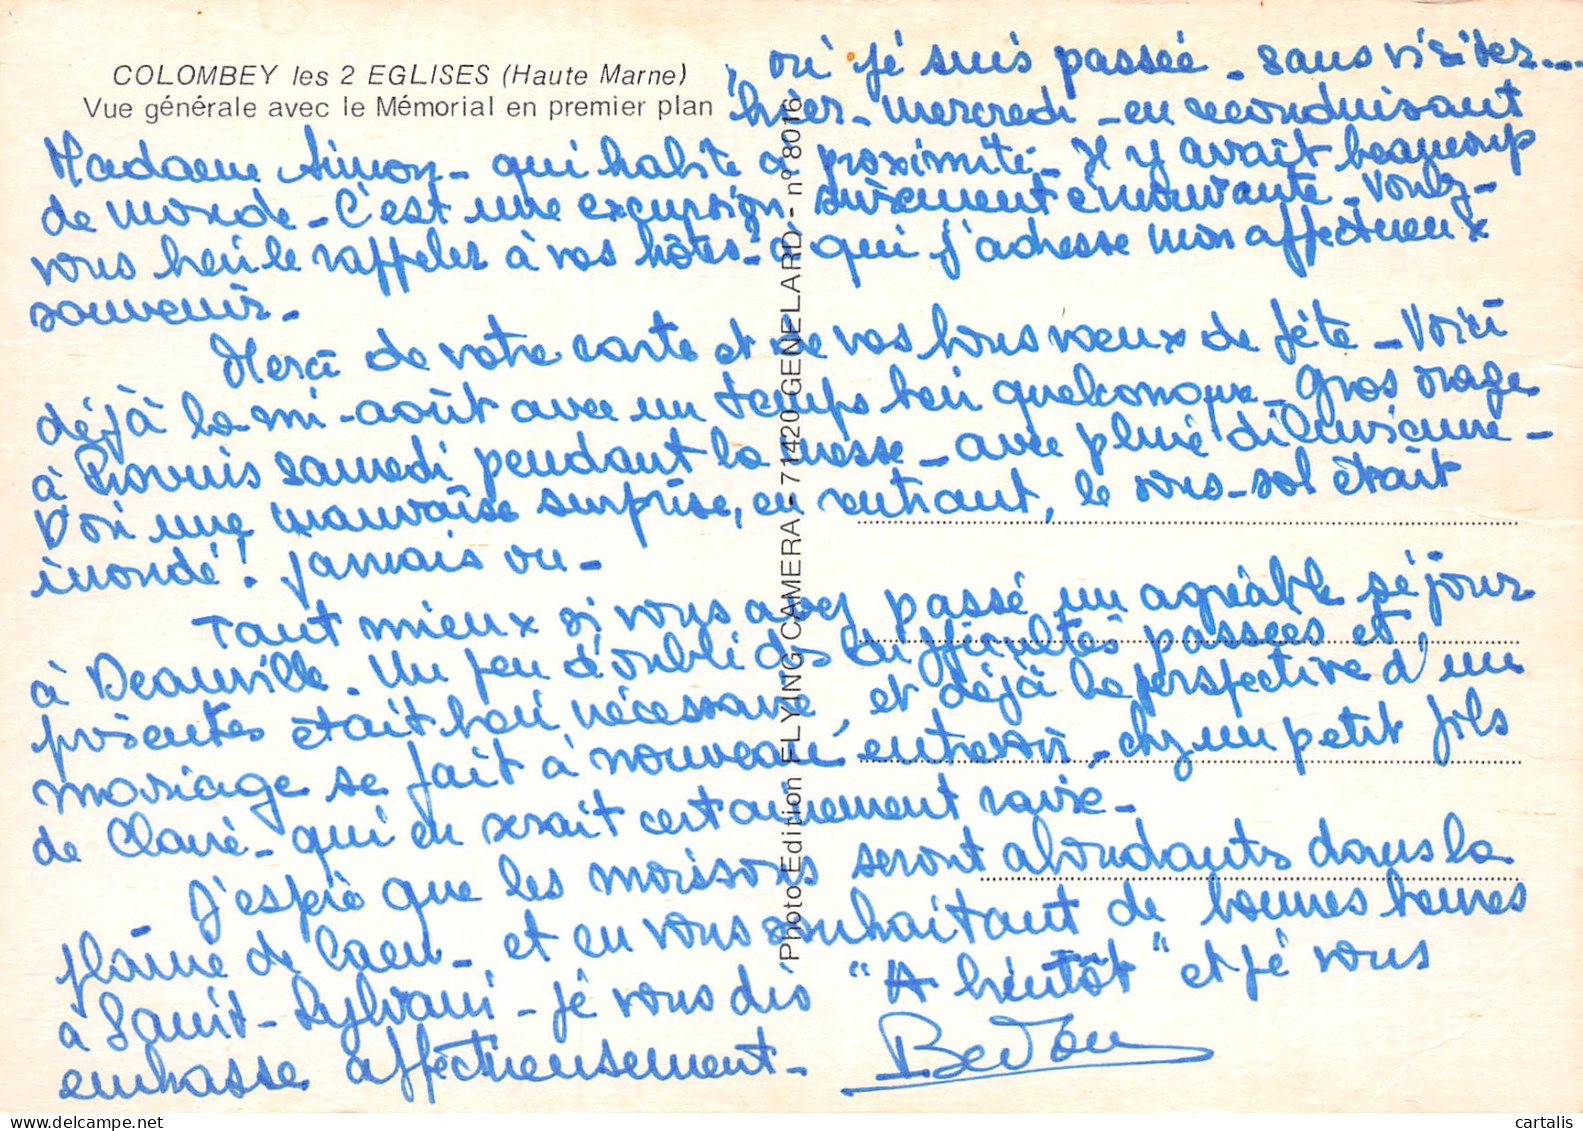 COLOMBEY les 2 EGLISES (Haute Marne)
Vue générale avec le Mémorial en premier plan
, où je suis passée - sans visiter....
hier - mercredi - en reconduisant
Madame Simon - qui habite à proximité - Il y avait beaucoup
de monde - C'est une excursion sûrement émouvante - Voulez-
vous bien le rappeler à vos hôtes - à qui j'adresse mon affectueux
souvenir -
Merci de votre carte et de vos bons vœux de fête - Voici
déjà la mi-août avec un temps bien quelconque - Gros orage
à Provins samedi pendant la messe - avec pluie diluvienne -
D'où une mauvaise surprise, en rentrant, le sous-sol était
inondé ! Jamais vu -
Tant mieux si vous avez passé un agréable séjour
à Deauville. Un peu d'oubli des difficultés passées et
présentes était bien nécessaire, et déjà la perspective d'un
mariage se fait à nouveau entrevoir - chez un petit fils
de Claire - qui en serait certainement ravie -
J'espère que les moissons seront abondantes dans la
plaine de Caen - et en vous souhaitant de bonnes
à Saint-Sylvain - je vous dis "A bientôt" et je vous
embrasse affectueusement -
Photo Edition FLYING CAMERA - 71420 GENELARD - nº 8016
cartalis